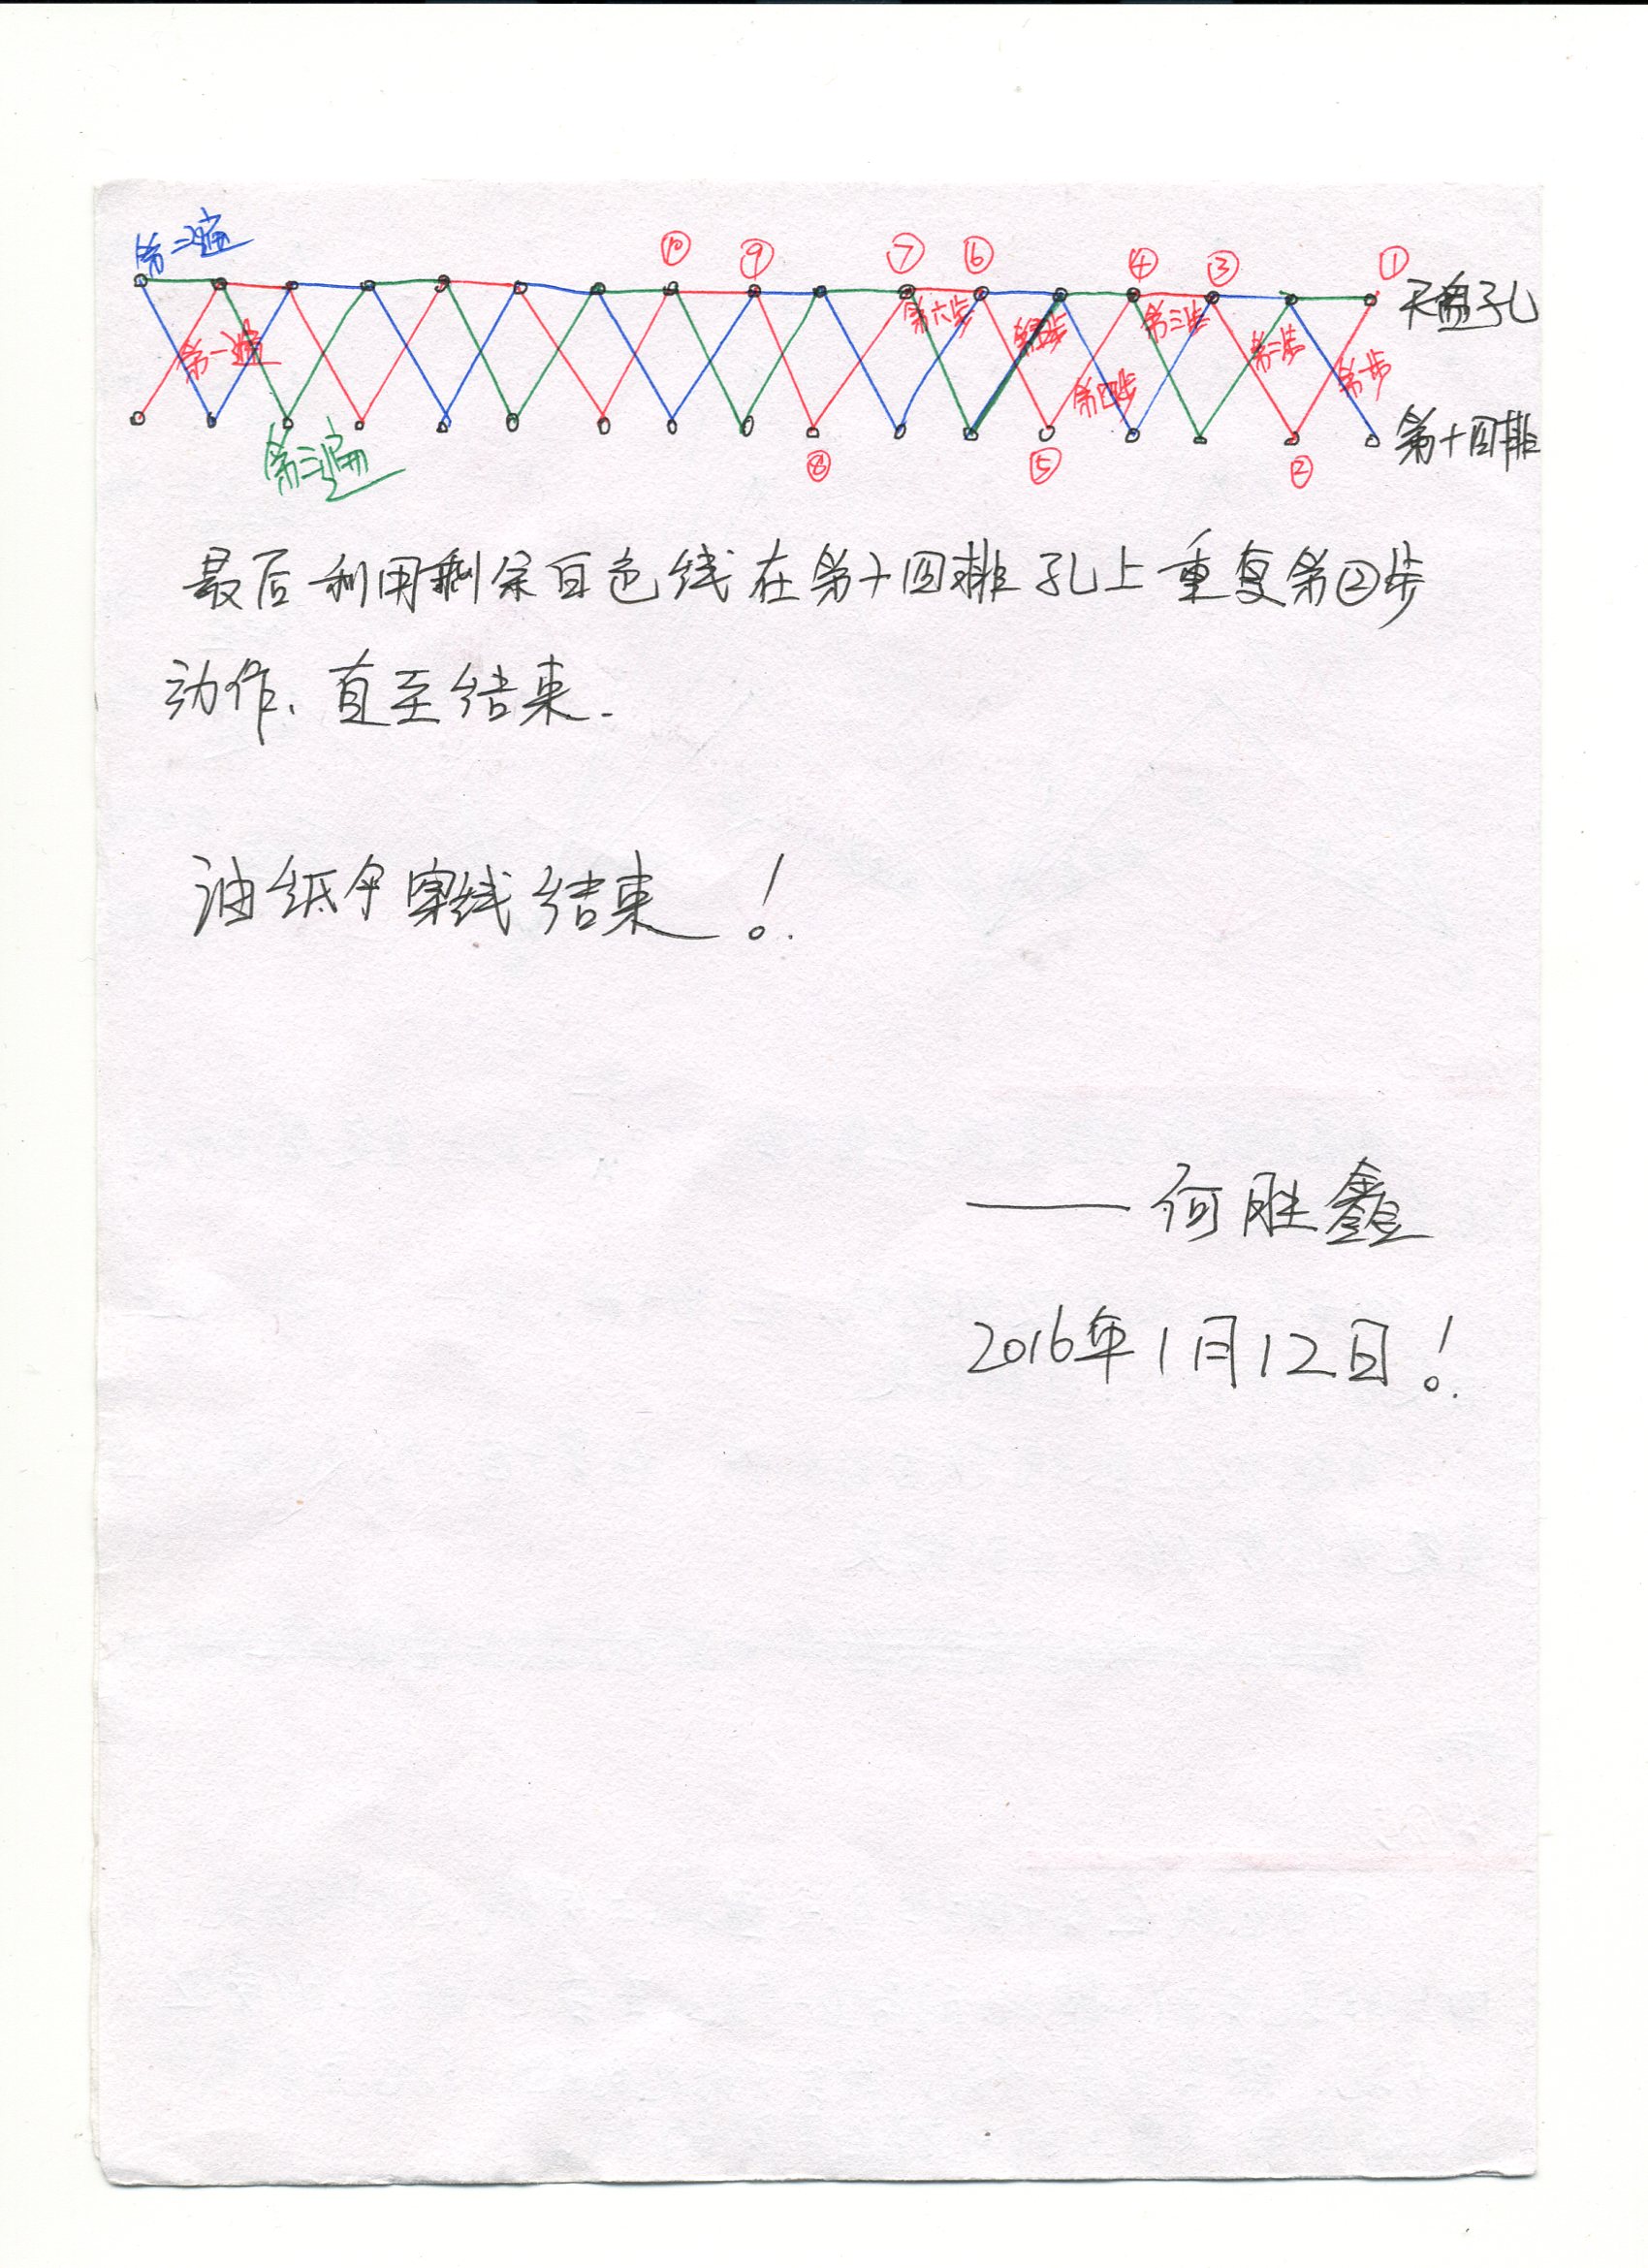 第二遍
⑩ ⑨ ⑦ ⑥ ④ ③ ①
天盘孔
第一遍 第六步 第五步 第四步 第三步 第二步 第一步
第三遍
⑧ ⑤ ②
第十四排
最后利用剩余白色线在第十四排孔上重复第②步
动作、直至结束.
油纸伞穿线结束!
——何胜鑫
2016年1月12日!